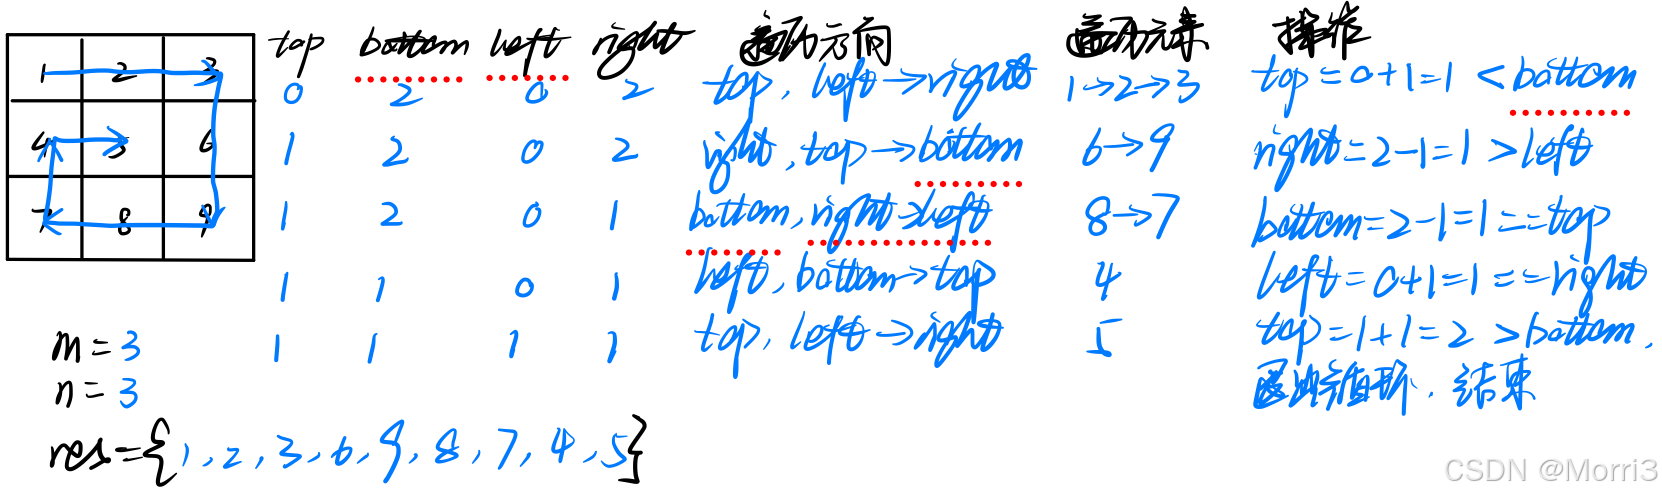 top bottom left right 移动方向 遍历元素 操作
1 2 3
0 2 0 2 top, left→right 1→2→3 top=0+1=1 < bottom
4 5 6
1 2 0 2 right, top→bottom 6→9 right=2-1=1 > left
7 8 9
1 2 0 1 bottom, right→left 8→7 bottom=2-1=1==top
1 1 0 1 left, bottom→top 4 left=0+1=1==right
m=3
1 1 1 1 top, left→right 5 top=1+1=2 > bottom,
n=3
退出循环,结束
res={1,2,3,6,9,8,7,4,5}
CSDN @Morri3